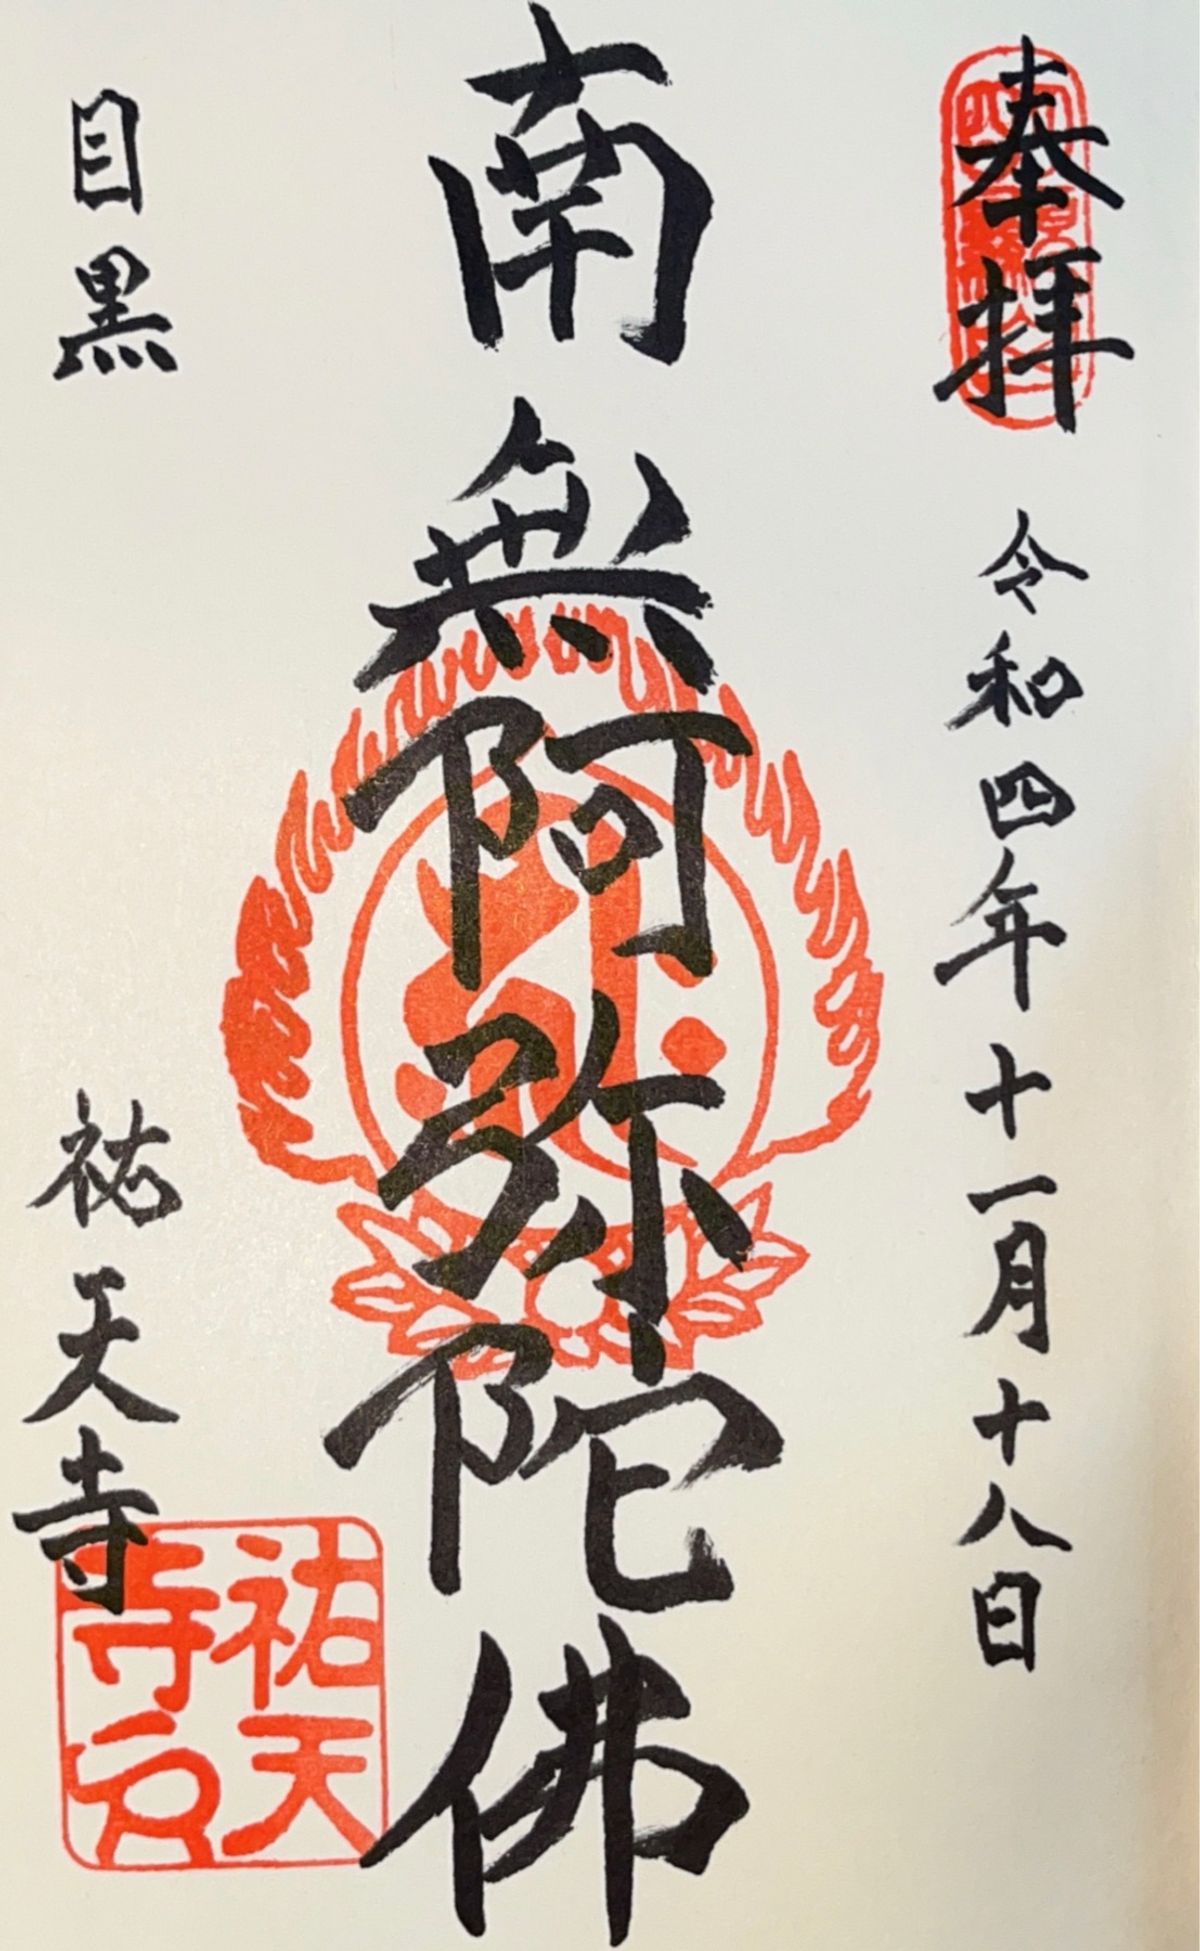 奉拝
令和四年十一月十八日
南無阿弥陀佛
目黒
祐天寺
祐天
寺